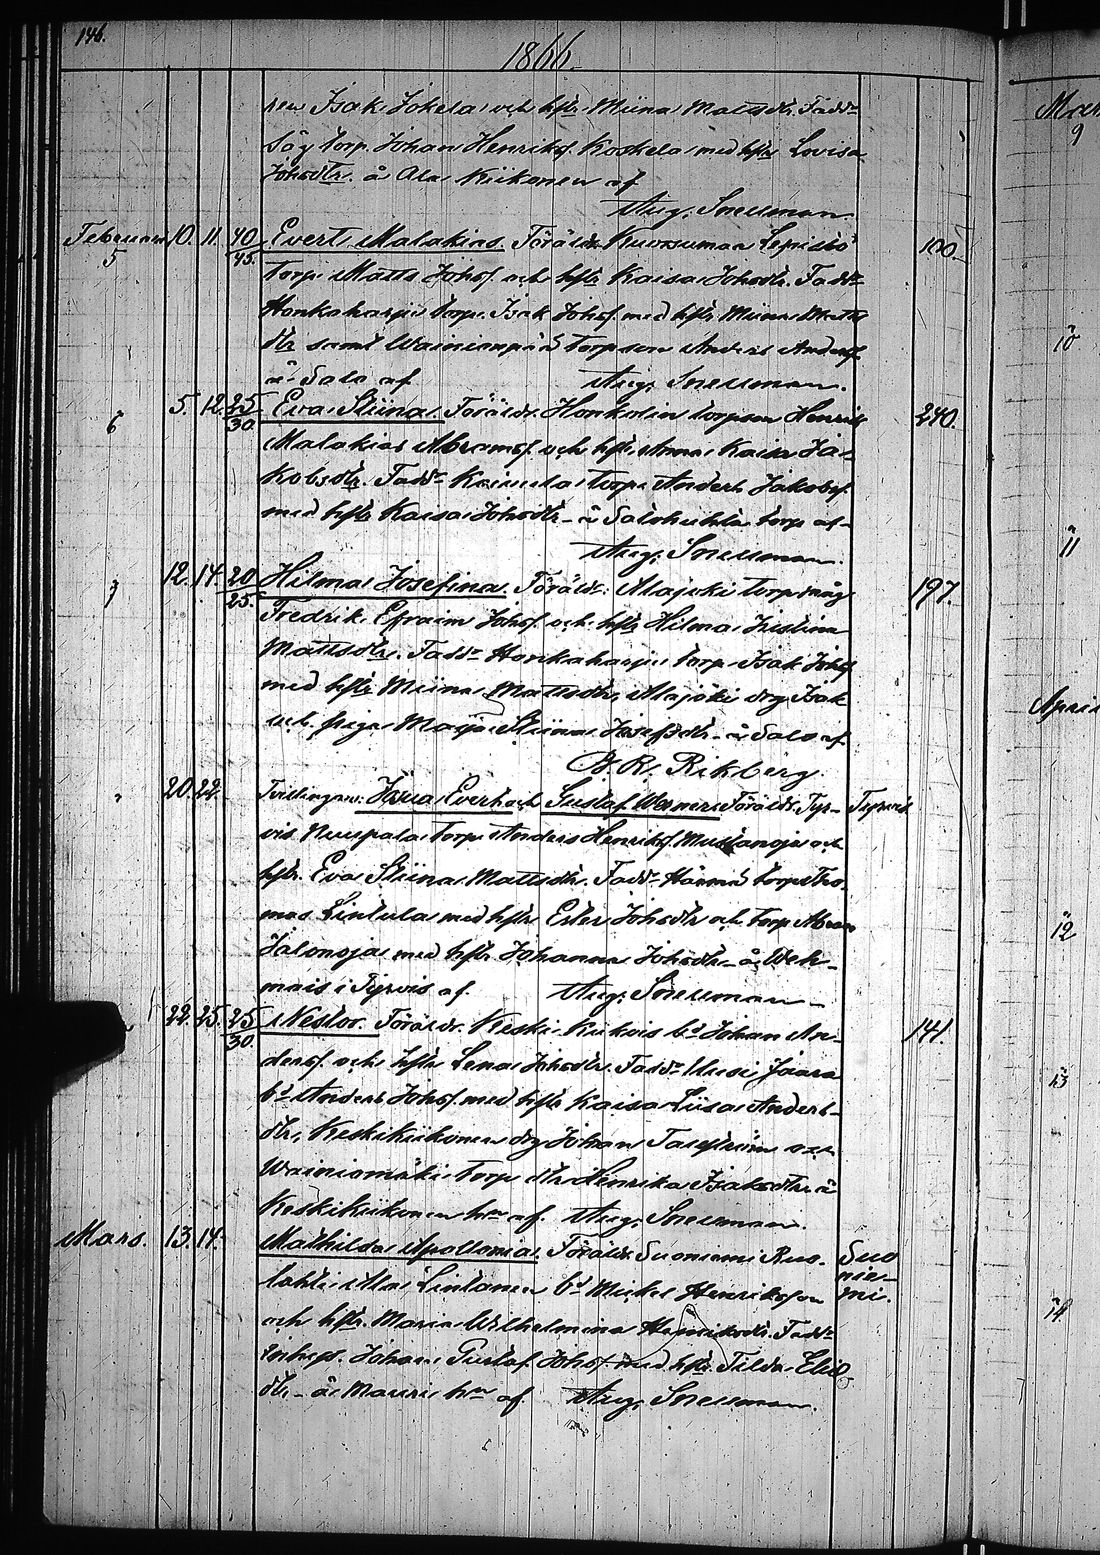 146.
1866
Isak Jokela och hstr. Miina Mattsdtr. Fadd:
Säy torp. Johan Henriksf. Koskela med hstr Lovisa
Johsdtr. å Ala Kiikonen af
Aug. Snellman
Februari 5 10. 11. 40/45. Evert Malakias. Föräldr. Lepistö 100.
torp. Matts Johsf. och hstr Kaisa Johsdtr. Fadd:
Honkaharju torp. Isak Johsf. med hstr Miina Matts
dtr samt Wainionpää torpson Anders Andersf.
å Salo af Aug. Snellman.
6 5. 12. 25/30. Eva Stiina. Föräldr. Honkolin torpson Henrik 240.
Malakias Abramsf. och hstr. Anna Kaisa Ja-
kobsdtr. Fadd: torp. Anders Jakobsf.
med hstr Kaisa Johsdtr - å torp af
Aug. Snellman.
7 12. 14. 20/25. Hilma Josefina. Föräldr: Alajoki torpmåg 197.
Fredrik Efraim Johsf. och hstr Hilma Kristina
Mattsdtr. Fadd: Honkaharju torp. Isak Johsf
med hstr Miina Mattsdtr, Alajoki drg Isak
och piga Maija Stiina Josefsdtr - å Salo af
B. R. Rikberg.
" 20. 22. Tvillingarne: Evert och Gustaf Werner. Föräldr. Tyr- Tyrvis
vis Nuupala torp. Anders Henriksf. Mustanoja och
hstr. Eva Stiina Mattsdtr. Fadd: torp. Tho-
mas Lintula med hstr Ester Johsdtr och torp. Abram
Jalonoja med hstr Johanna Johsdtr - å Weh-
mais i Tyrvis af. Aug. Snellman -
22. 25. 25/30. Nestor. Föräldr. Keski Kiikois bd Johan An- 141.
dersf. och hstr Lena Johsdtr. Fadd: Uusi Jaara
bd Anders Johsf. med hstr Kaisa Liisa Anders-
dtr, Keskikiikonen drg Johan och
Wainiomäki torp. dtr Henrika Isaksdtr å
Keskikiikonen hn af. Aug. Snellman.
Mars. 13. 14. Mathilda Apollonia. Föräldr Suoniemi Suo
lahti Ala Lintanen bd Mickel Henriksson nie-
och hstr. Maria Wilhelmina Henriksdtr. Fadd: mi.
inhys. Johan Gustaf Johsf. med hstr. Tilda
dtr - å Mauri hn af. Aug. Snellman.
Mar
9
10
11
April
12
13
14